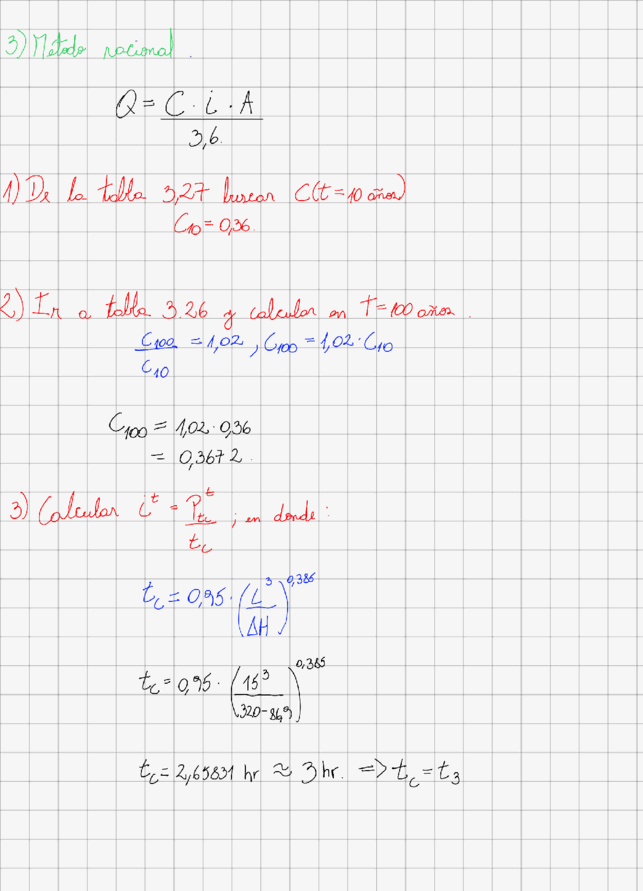 3) Método racional.
Q = C · i · A
3,6.
1) De la tabla 3,27 buscar C(t=10 años)
C10 = 0,36.
2) Ir a tabla 3.26 y calcular en T=100 años.
C100 = 1,02 , C100 = 1,02 · C10
C10
C100 = 1,02 · 0,36
= 0,3672.
3) Calcular i^t = P_tc^t ; en donde:
tc
tc = 0,95 · (L^3 / ΔH)^0,385
tc = 0,95 · (15^3 / 320-869)^0,385
tc = 2,65831 hr ≈ 3 hr. => tc = t3